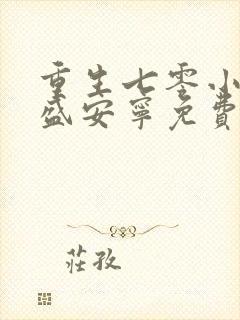 重生七零小
盛安宁免费
莊孜